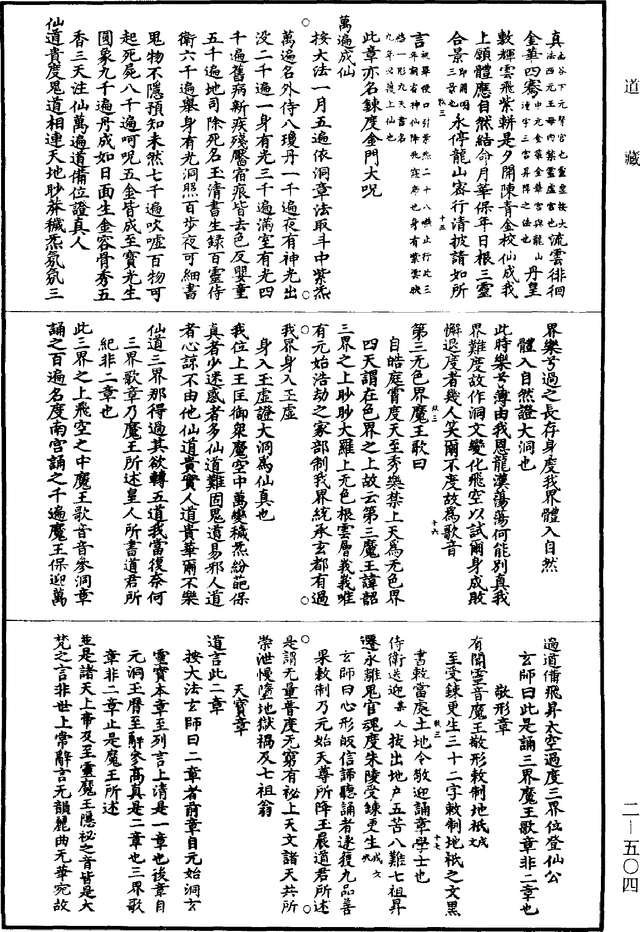 道藏
真
金華四騫
流雲徘徊
丹皇
敷輝雲飛紫軿是夕開陳青金校仙成我
上願體應自然結命月華保年日根三靈
合景
永停龍山密行清披請如所
言
此章亦名鍊度金門大呪
萬遍成仙
按大法一月五遍依洞章法取斗中紫炁
萬遍名外侍八瓊丹一千遍夜有神光出
没二千遍一身有光三千遍滿室有光四
千遍舊病新疾殘靨宿痕皆去色反嬰童
五千遍地司除死名玉清書生録百靈侍
衛六千遍舉身有光洞照百步夜可細書
鬼物不隱預知未然七千遍吹嘘百物可
起死屍八千遍呵呪五金皆成至寶光生
圓象九千遍丹成如日面生金容骨秀五
香三天注仙萬遍道備位證真人
仙道貴度鬼道相連天地眇莽穢炁氛氛三
界樂兮過之長存身度我界體入自然
體入自然證大洞也
此時樂兮薄由我恩龍漢蕩蕩何能别真我
界難度故作洞文變化飛空以試爾身成敗
懈退度者幾人笑爾不度故爲歌音
第三无色界魔王歌曰
自皓庭霄度天至秀樂禁上天爲无色界
四天謂在色界之上故云第三魔王諱韶
三界之上眇眇大羅上无色根雲層峩峩唯
有元始浩劫之家部制我界統承玄都有過
我界身入玉虚
身入玉虚證大洞爲仙真也
我位上王匡御衆魔空中萬變穢炁紛葩保
真者少迷惑者多仙道難固鬼道易邪人道
者心諒不由他仙道貴實人道貴華爾不樂
仙道三界那得過其欲轉五道我當復奈何
三界歌章乃魔王所述皇人所書道君所
紀非二章也
此三界之上飛空之中魔王歌音音參洞章
誦之百遍名度南宫誦之千遍魔王保迎萬
遍道備飛昇太空過度三界位登仙公
玄師曰此是誦三界魔王歌章非二章也
敬形章
有聞靈音魔王敬形敕制地祇
至受鍊更生三十二字敕制地祇之文黑
書敕當處土地令敬迎誦章學士也
侍衛送迎
拔出地户五苦八難七祖昇
遷永離鬼官魂度朱陵受鍊更生
玄師曰心形皈信諦聽誦者遂獲九品善
果敕制乃元始天尊所降玉晨道君所述
是謂无量普度无窮有祕上天文諸天共所
崇泄慢墮地獄禍及七祖翁
天寶章
道言此二章
按大法玄師曰二章者前章自元始洞玄
靈寶本章至列言上清是一章也後章自
元洞玉曆至解參高真是二章也三界歌
章非二章止是魔王所述
並是諸天上帝及至靈魔王隱祕之音皆是大
梵之言非世上常辭言无韻麗曲无華宛故
二一五〇四